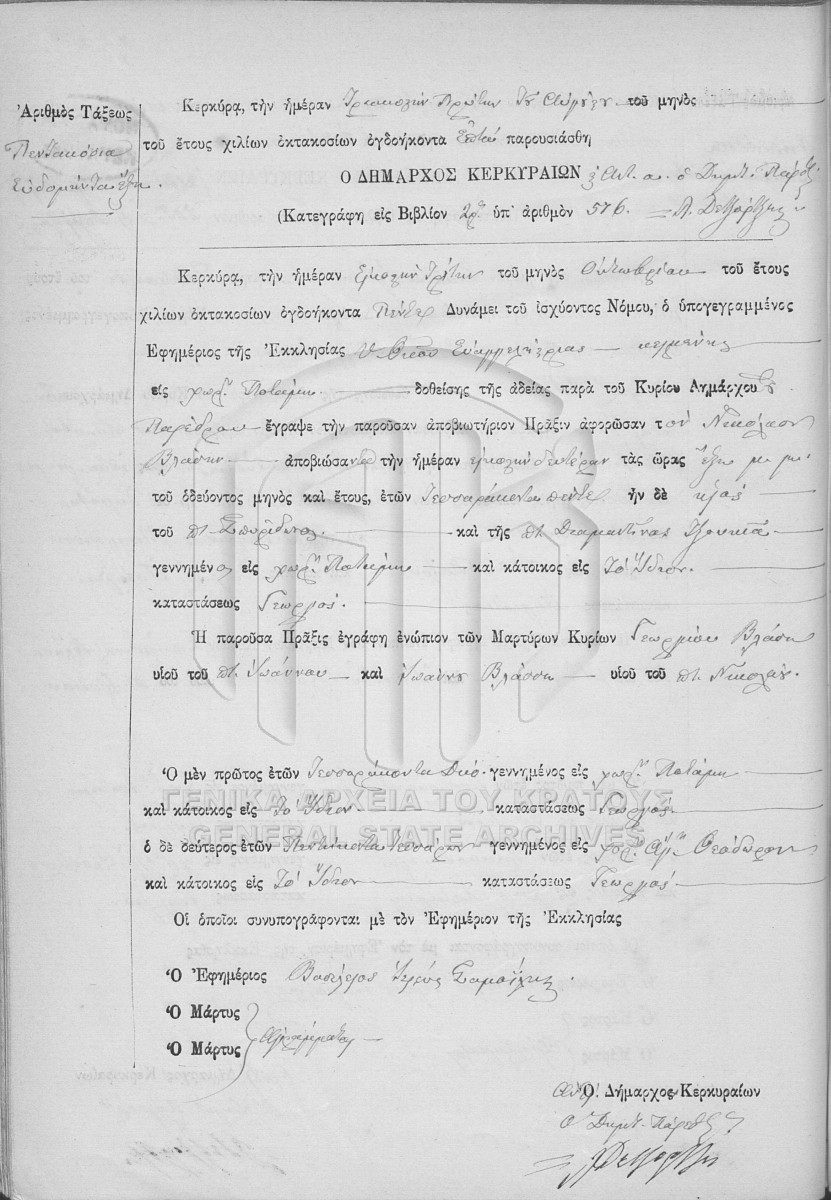 Ἀριθμὸς Τάξεως
Πεντακόσια
Ἑβδομήντα ἕξη
Κερκύρᾳ, τὴν ἡμέραν Τριακοστὴν Πρώτην τοῦ μηνὸς
τοῦ ἔτους χιλίων ὀκτακοσίων ὀγδοήκοντα Ἑπτὰ παρουσιάσθη
Ο ΔΗΜΑΡΧΟΣ ΚΕΡΚΥΡΑΙΩΝ ὁ Δημτ. Πάρεδ.
(Κατεγράφη εἰς Βιβλίον ὑπ' ἀριθμὸν 576.
Κερκύρᾳ, τὴν ἡμέραν Εἰκοστὴν Τρίτην τοῦ μηνὸς Ὀκτωβρίου τοῦ ἔτους
χιλίων ὀκτακοσίων ὀγδοήκοντα Πέντε Δυνάμει τοῦ ἰσχύοντος Νόμου, ὁ ὑπογεγραμμένος
Ἐφημέριος τῆς Ἐκκλησίας Εὐαγγελιστρίας κειμένης
εἰς χωρ. Ποταμὸ δοθείσης τῆς ἀδείας παρὰ τοῦ Κυρίου Δημάρχου
Παρέδρου ἔγραψε τὴν παροῦσαν ἀποβιωτήριον Πρᾶξιν ἀφορῶσαν τὸν Νικόλαον
Βλάσην ἀποβιώσαντα τὴν ἡμέραν εἰκοστὴν δευτέραν τὰς ὥρας ἕξη μ. μ.
τοῦ ὁδεύοντος μηνὸς καὶ ἔτους, ἐτῶν Τεσσαράκοντα πέντε ἦν δὲ υἱὸς
τοῦ πτ. Σπυρίδωνος καὶ τῆς πτ. Διαμαντίνας
γεννημένος εἰς χωρ. Ποταμὸ καὶ κάτοικος εἰς Τὸ Ἴδιον
καταστάσεως Γεωργός.
Ἡ παροῦσα Πρᾶξις ἐγράφη ἐνώπιον τῶν Μαρτύρων Κυρίων Γεωργίου Βλάση
υἱοῦ τοῦ πτ. Ἰωάννου καὶ Ἰωάννη Βλάσση υἱοῦ τοῦ πτ. Νικολάου.
Ὁ μὲν πρῶτος ἐτῶν Τεσσαράκοντα Δύο γεννημένος εἰς χωρ. Ποταμὸ
καὶ κάτοικος εἰς Τὸ Ἴδιον καταστάσεως Γεωργὸς
ὁ δὲ δεύτερος ἐτῶν Πεντήκοντα τεσσάρων γεννημένος εἰς χωρ. Ἁγ. Θεόδωρον
καὶ κάτοικος εἰς Τὸ Ἴδιον καταστάσεως Γεωργός
Οἱ ὁποῖοι συνυπογράφονται μὲ τὸν Ἐφημέριον τῆς Ἐκκλησίας
Ὁ Ἐφημέριος Βασίλειος Ἱερεὺς
Ὁ Μάρτυς
Ὁ Μάρτυς
Ἀγράμματοι
Ὁ Δήμαρχος Κερκυραίων
Ὁ Δημτ. Πάρεδ.
ΓΕΝΙΚΑ ΑΡΧΕΙΑ ΤΟΥ ΚΡΑΤΟΥΣ
GENERAL STATE ARCHIVES